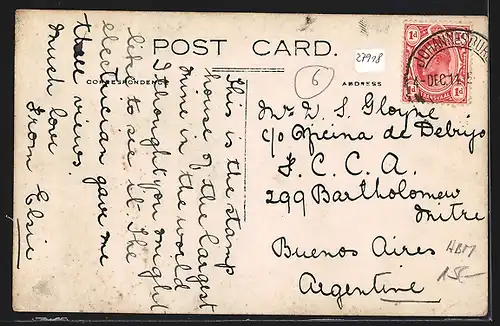 POST CARD.
27918
6
CORRESPONDENCE
ADDRESS
This is the stamp
house of the largest
mine in the world
I thought you might
like to see it. The
electrician gave me
these views.
Much love
From Elsie
Mr D. S. Gloyne
c/o Oficina de Debrijo
F. C. C. A.
299 Bartholomew
Mitre
Buenos Aires
Argentine
HBM
15-
1d 1d
TRANSVAAL
JOHANNESBURG
DEC 11